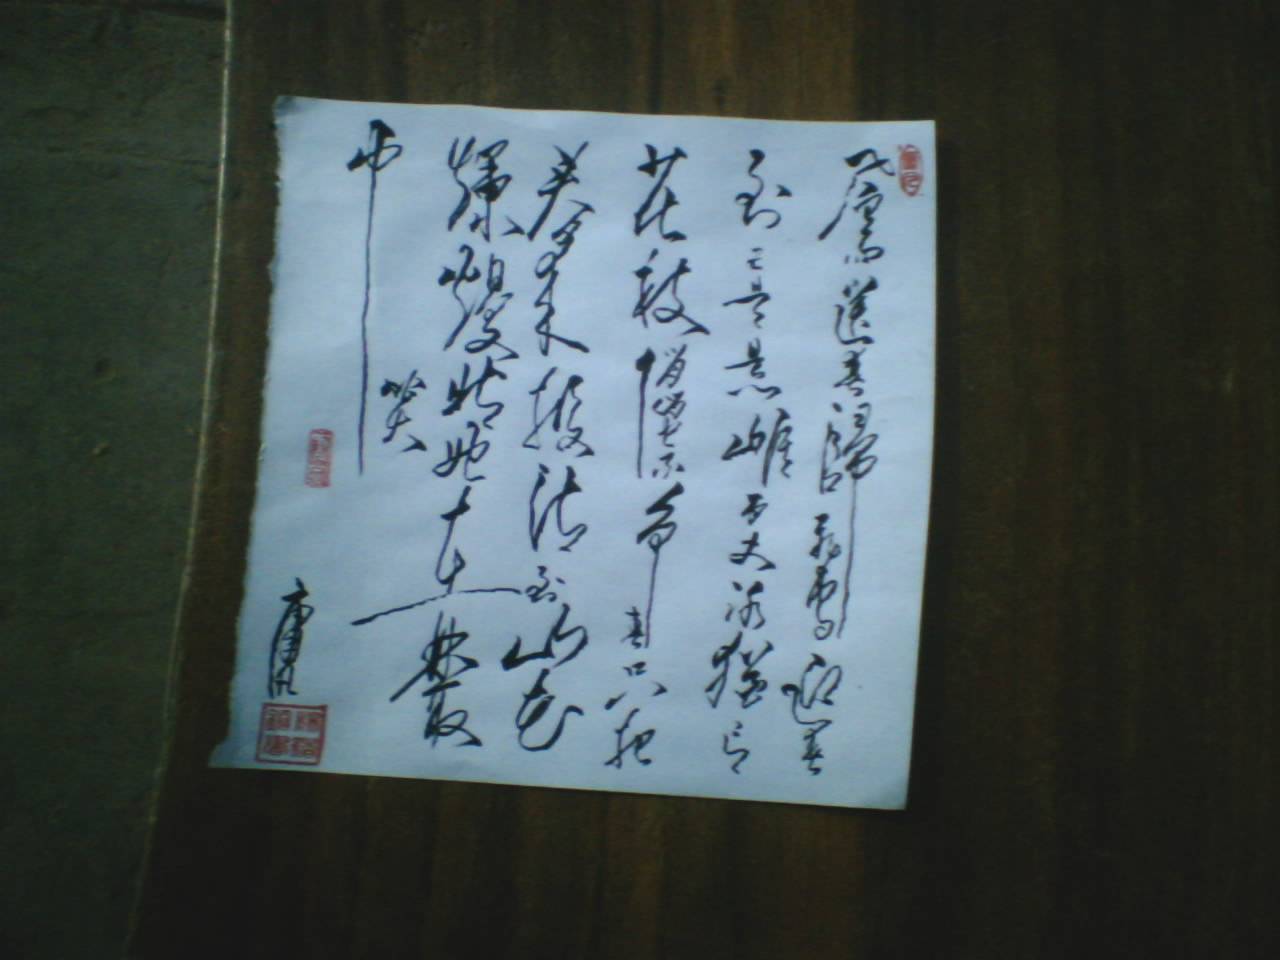 風雨送春歸飛雪迎春
到已是悬崖百丈冰猶有
花枝俏俏也不争春只把
春来报待到山花
爛熳时她在叢
中笑